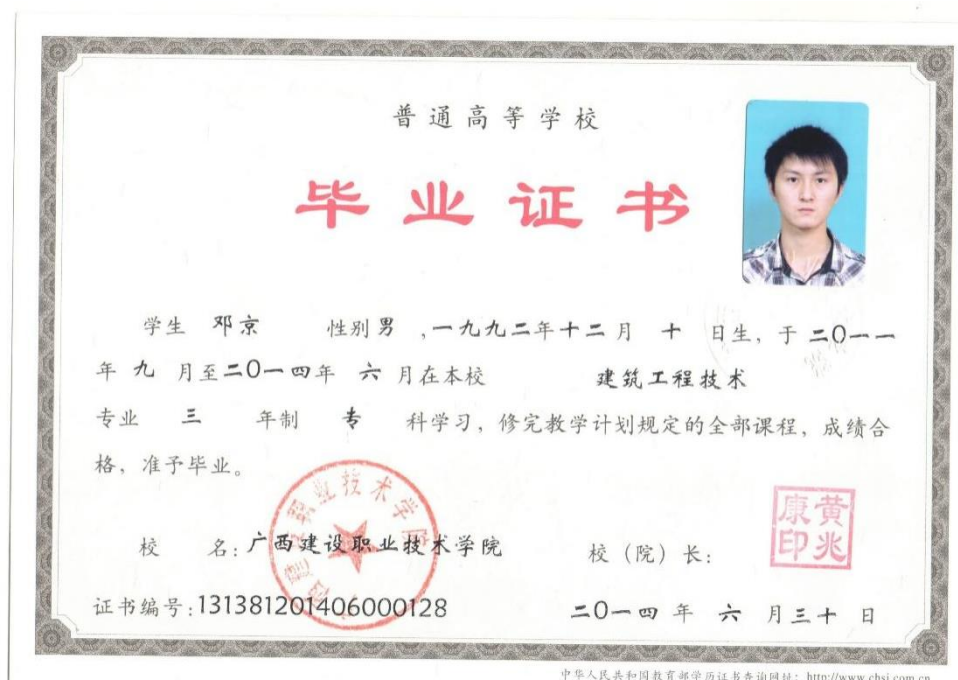 普通高等学校
毕业证书
学生 邓京 性别 男 ,一九九二年十二月 十 日生，于 二〇一一
年 九 月至二〇一四年 六 月在本校 建筑工程技术
专业 三 年制 专 科学习，修完教学计划规定的全部课程，成绩合
格，准予毕业。
校 名：广西建设职业技术学院
校（院）长：
黄兆康印
证书编号：131381201406000128
二〇一四 年 六 月三十 日
中华人民共和国教育部学历证书查询网址：http://www.chsi.com.cn